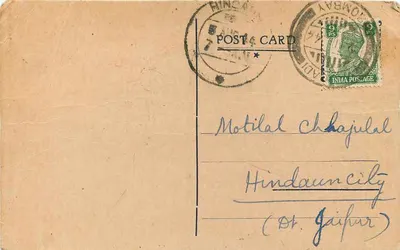 HINDAUN
BOMBAY
POST CARD
INDIA POSTAGE
Motilal Chhajulal
Hindauncity
(Dt. Jaipur)